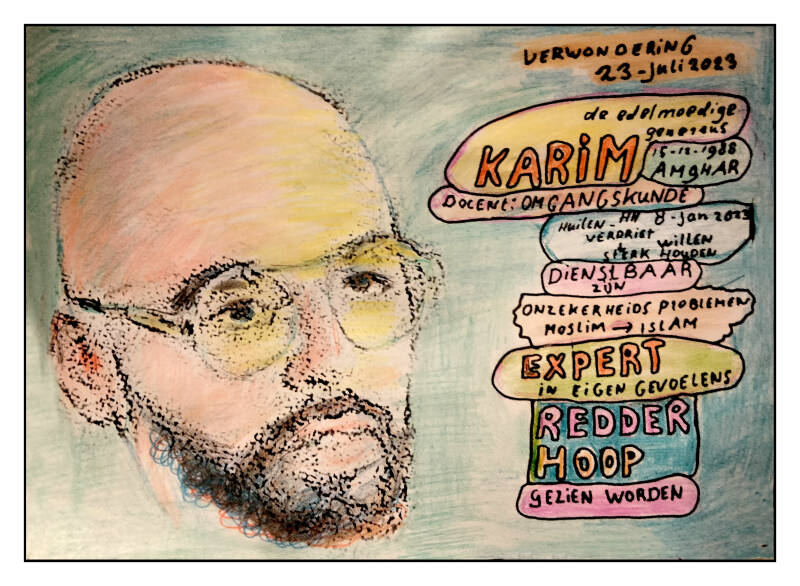 VERWONDERING
23-juli 2023
de edelmoedige
genereus
KARIM
15-12-1988
AMGHAR
DOCENT: OMGANGSKUNDE
HUILEN - HH 8-jan 2023
VERDRIET WILLEN
& STERK HOUDEN
DIENSTBAAR
ZIJN
ONZEKERHEIDS PROBLEMEN
MOSLIM → ISLAM
EXPERT
IN EIGEN GEVOELENS
REDDER
HOOP
GEZIEN WORDEN